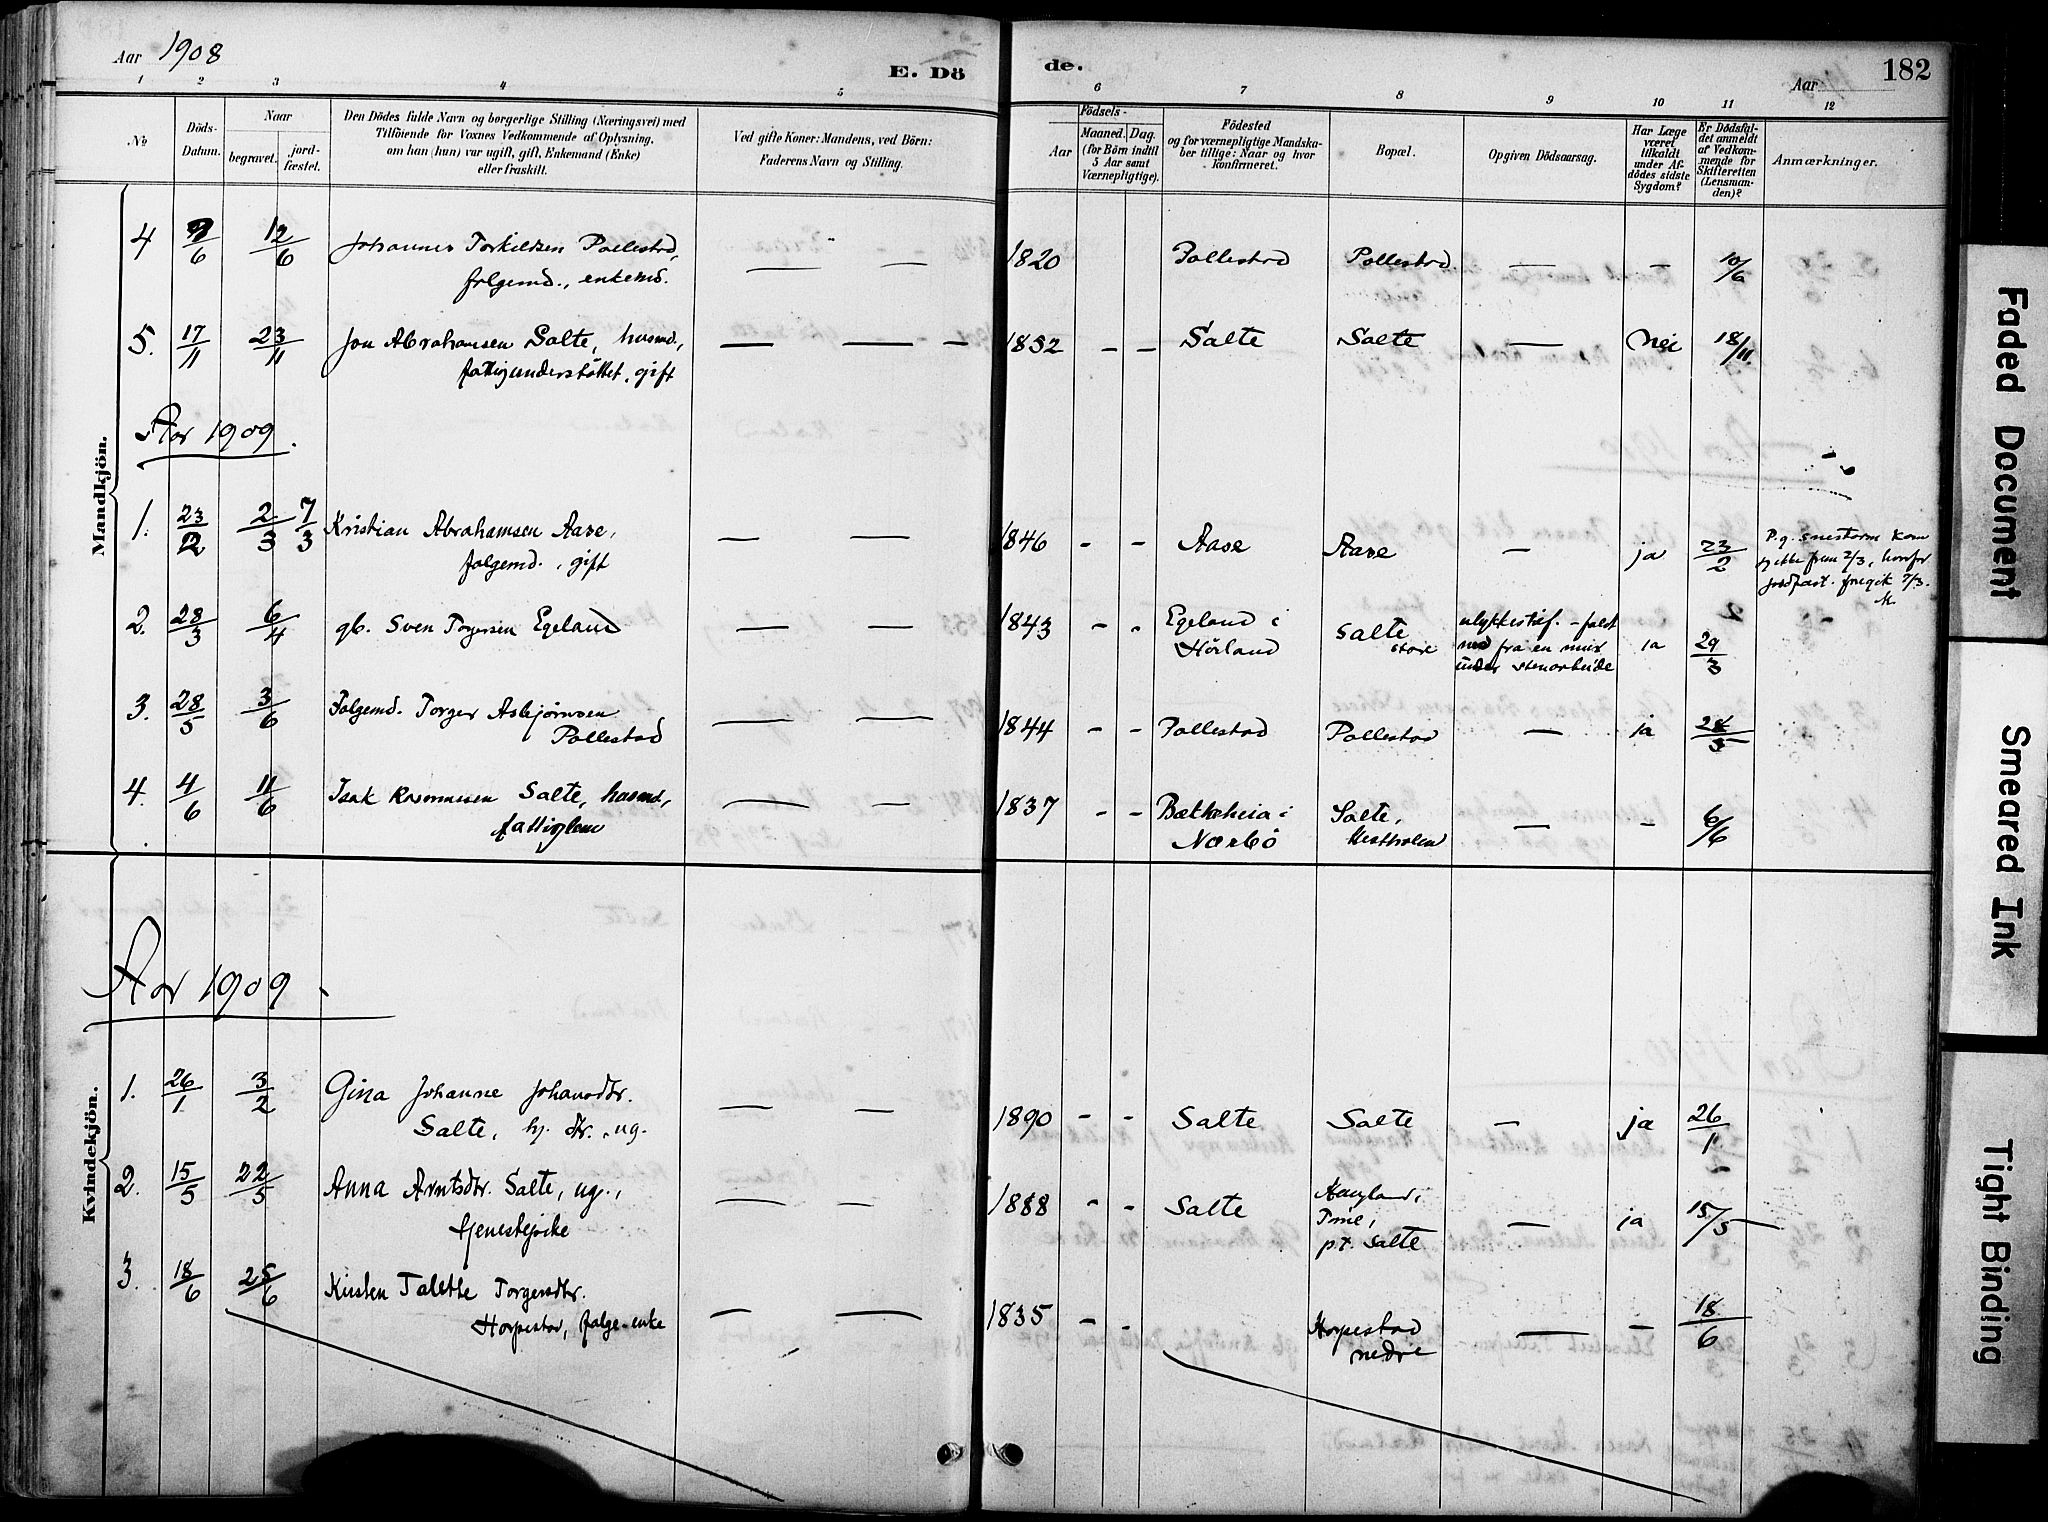 Aar 1908
E. Döde.
Aar
182
1 2 3 4 5 6 7 8 9 10 11 12
№
Döds-Datum.
Naar
begravet.
jord-fæstet.
Den Dödes fulde Navn og borgerlige Stilling (Næringsvei) med
Tilföiende for Voxnes Vedkommende af Oplysning,
om han (hun) var ugift, gift, Enkemand (Enke)
eller fraskilt.
Ved gifte Koner: Mandens, ved Börn:
Faderens Navn og Stilling.
Födsels-
Aar
Maaned. Dag.
(for Börn indtil
5 Aar samt
Værnepligtige).
Födested
og for værnepligtige Mandska-
ber tillige: Naar og hvor
konfirmeret.
Bopæl.
Opgiven Dödsaarsag.
Har Læge
været
tilkaldt
under Af-
dödes sidste
Sygdom?
Er Dödsfal-
det anmeldt
af Vedkom-
mende for
Skifteretten
(Lensman-
den)?
Anmærkninger.
Mandkjön.
4 9/6 12/6 Johannes Torkildsen Pollestad, — — 1820 Pollestad Pollestad — — 10/6
folgemd., enkemd.
5. 17/11 23/11 Jon Abrahamsen Salte, husmd., — — — 1852 - - Salte Salte — Nei 18/11
fattigunderstöttet, gift
Aar 1909.
1. 23/2 2/3 7/3 Kristian Abrahamsen Aase, — — 1846 - - Aase Aase — ja 23/2 P.g. snestorm kom
folgemd., gift
ikke frem 2/3, hvorfor
jordfæst. foregik 7/3.
2. 28/3 6/4 gb. Sven Torgersen Egeland — — 1843 - - Egeland i Salte ulykkestilf. - faldt ja 29/3
Hörland store ned fra en mur
under stenarbeide
3. 28/5 3/6 Folgemd. Torger Asbjørnsen — — 1844 - - Pollestad Pollestad — ja 28/5
Pollestad
4. 4/6 11/6 Isak Rasmussen Salte, husmd., — — 1837 - - Bakkeheia i Salte, — - 6/6
fattiglem Nærbö
Kvindekjön.
Aar 1909
1. 26/1 3/2 Gina Johanne Johansdtr. — — 1890 - - Salte Salte — ja 26/1
Salte, hj. dtr., ug.
2. 15/5 22/5 Anna Arntsdtr. Salte, ug., — — 1888 - - Salte Haugland, — ja 15/5
tjenestepike Time,
p.t. Salte
3. 18/6 25/6 Kirsten Talette Torgersdtr. — — 1835 - - Horpestad — — 18/6
Horpestad, folge-enke nedre
Faded Document
Smeared Ink
Tight Binding